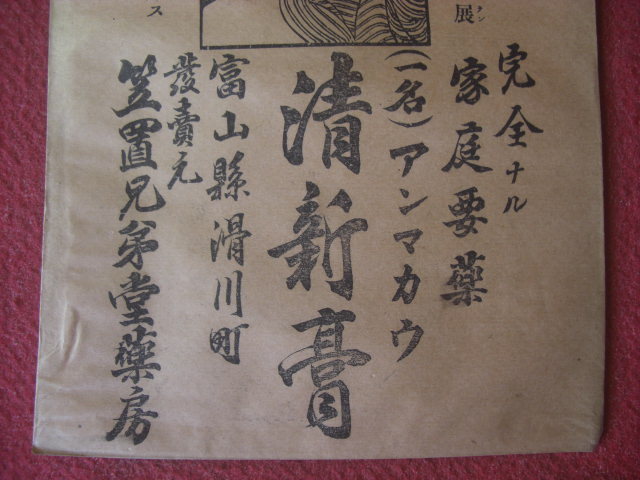 展
ス
完全ナル
家庭要藥
(一名)アンマカウ
清新膏
富山縣滑川町
發賣元
笠置兄弟堂藥房